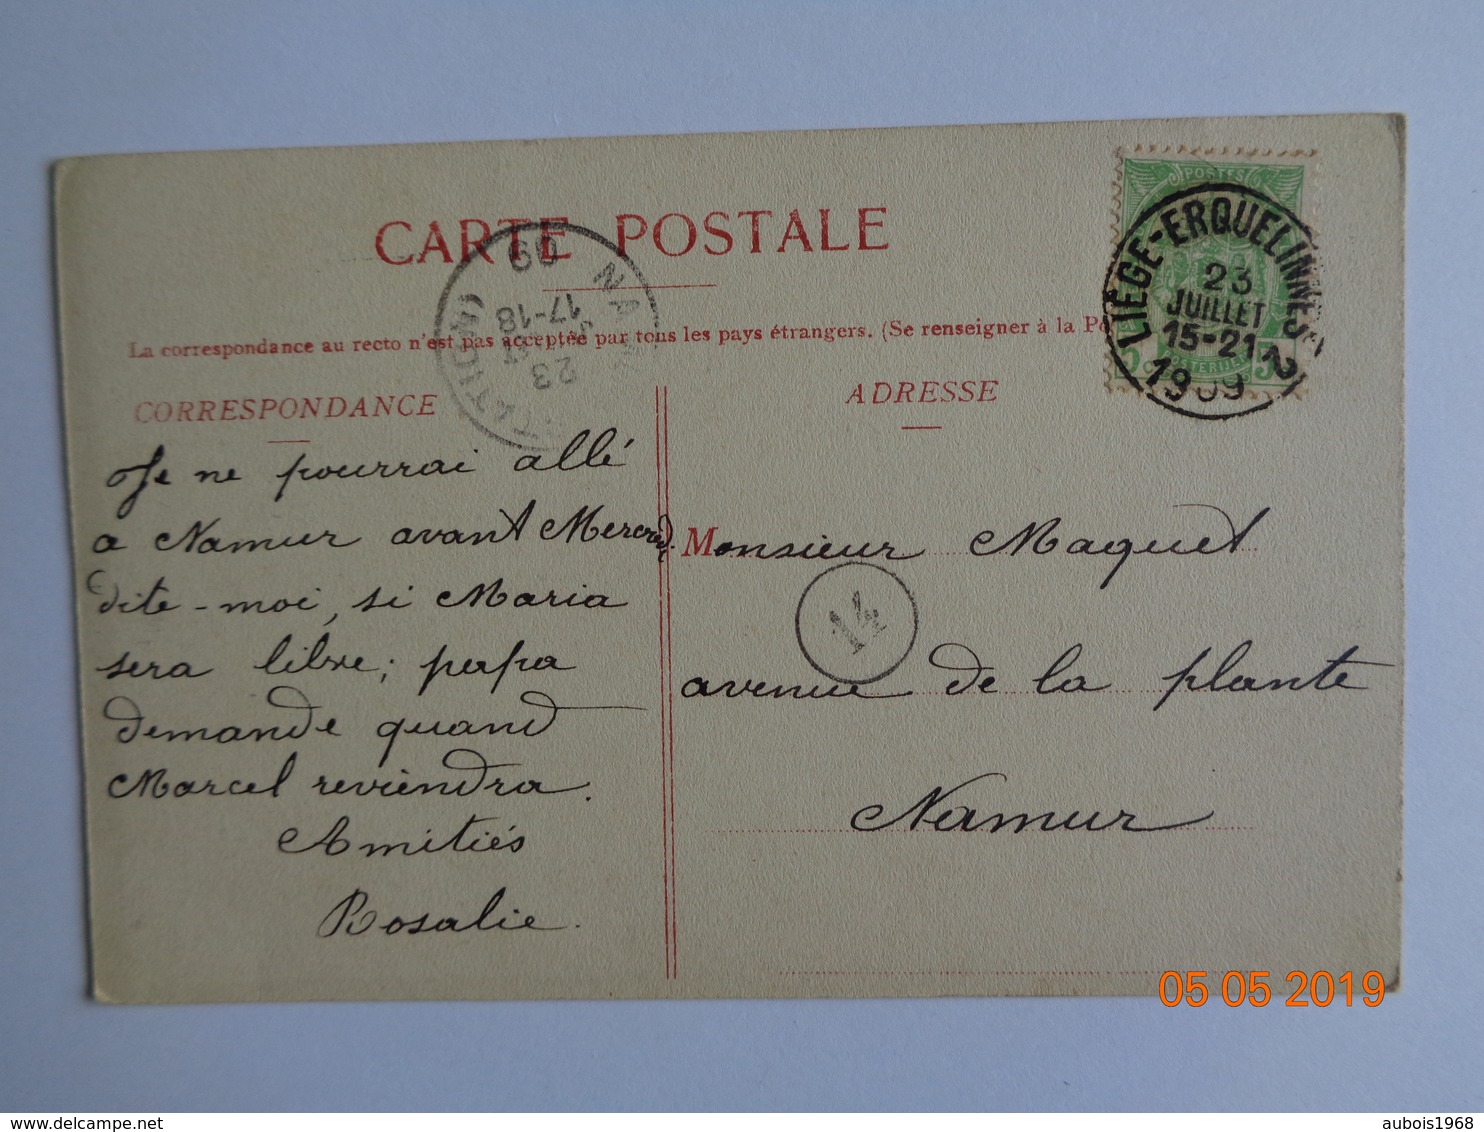 CARTE POSTALE
La correspondance au recto n'est pas acceptée par tous les pays étrangers. (Se renseigner à la Po
CORRESPONDANCE
ADRESSE
POSTES
5
LIÈGE-ERQUELINNES 2
23
JUILLET
15-21
1909
POSTERIJEN
09
17-18
23
Je ne pourrai allé
a Namur avant Mercredi.
dite-moi, si Maria
sera libre; papa
demande quand
Marcel reviendra.
Amitiés
Rosalie.
Monsieur Maquet
14
avenue de la plante
Namur
05 05 2019
aubois1968